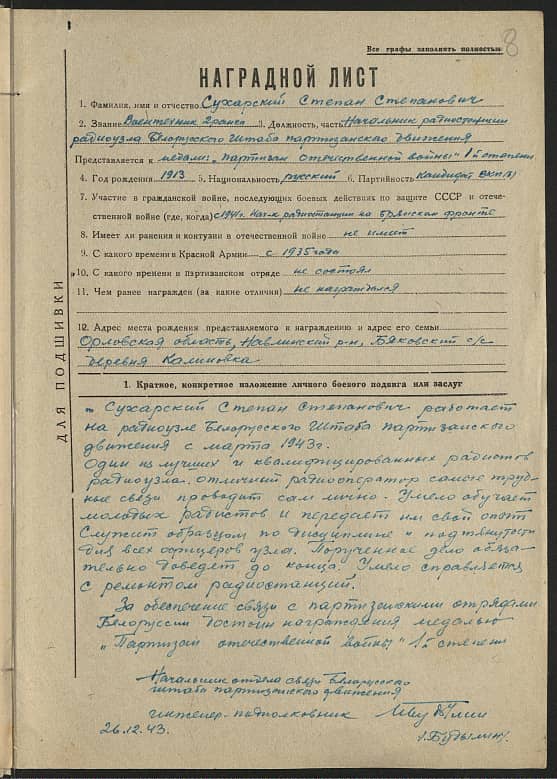 8
Все графы заполнять полностью
НАГРАДНОЙ ЛИСТ
1. Фамилия, имя и отчество Сухарский Степан Степанович
2. Звание Воентехник 2 ранга 3. Должность, часть Начальник радиостанции
радиоузла Белорусского Штаба партизанского движения
Представляется к медали: "партизан отечественной войны" 1й степени
4. Год рождения 1913 5. Национальность русский 6. Партийность Кандидат ВКП(б)
7. Участие в гражданской войне, последующих боевых действиях по защите СССР и отече-
ственной войне (где, когда) с 1941г. Нач-к радиостанции на Брянском фронте
8. Имеет ли ранения и контузии в отечественной войне не имеет
9. С какого времени в Красной Армии с 1935 года
10. С какого времени в партизанском отряде не состоял
11. Чем ранее награжден (за какие отличия) не награждался
12. Адрес места рождения представляемого к награждению и адрес его семьи
Орловская область, Навлинский р-н, Бяковский с/с
деревня Калиновка
ДЛЯ ПОДШИВКИ
1. Краткое, конкретное изложение личного боевого подвига или заслуг
Сухарский Степан Степанович работает
на радиоузле Белорусского Штаба партизанского
движения с марта 1943г.
Один из лучших и квалифицированных радистов
радиоузла. отличный радиооператор самые труд-
ные связи проводит сам лично. Умело обучает
молодых радистов и передает им свой опыт
Служит образцом по дисциплине и подтянутости
для всех офицеров узла. Порученное дело обяза-
тельно доведет до конца. Умело справляется
с ремонтом радиостанций.
За обеспечение связи с партизанскими отрядами
Белоруссии достоин награждения медалью
"Партизан отечественной войны" 1й степени
Начальник отдела связи Белорусского
штаба партизанского движения
инженер-подполковник
26.12.43.